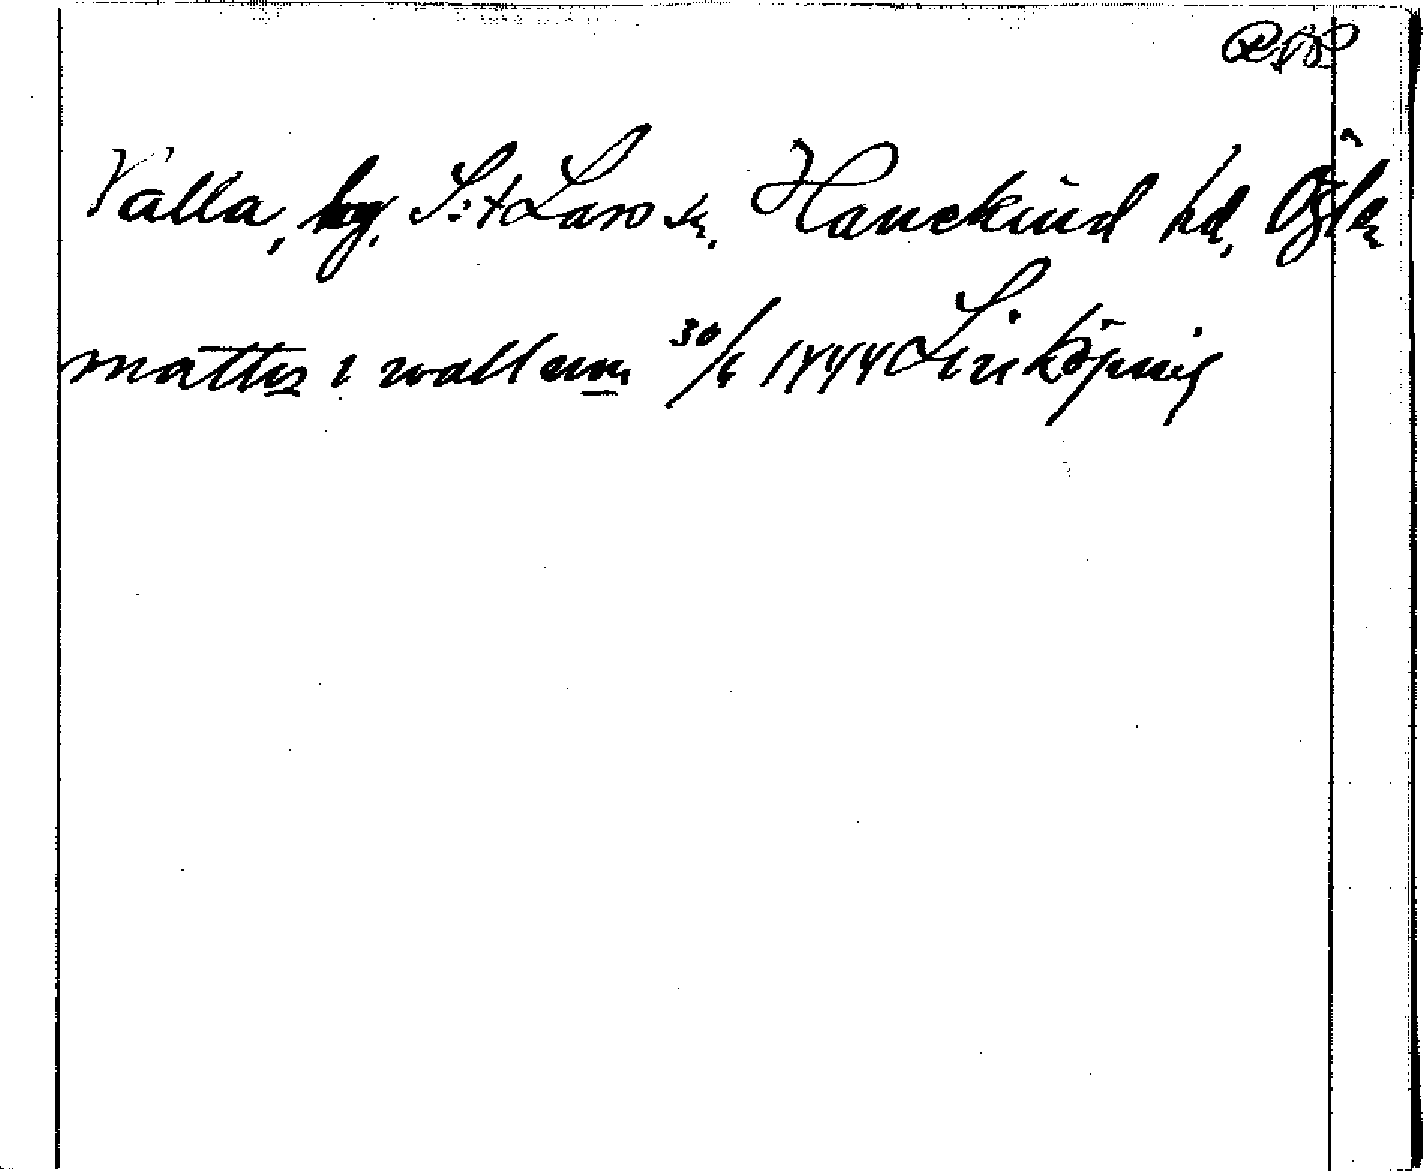 Valla, by, S:t Lars sn, Hanekind hd, Ögl
mattis i wallom 30/6 1444 Linköping